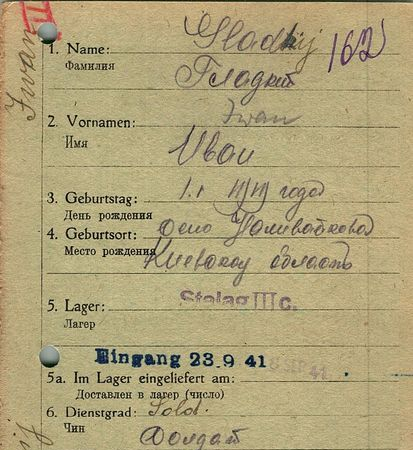 Iwan
1. Name: Gladkij 162
Фамилия Гладкий
2. Vornamen: Iwan
Имя Иван
3. Geburtstag: 1.1
День рождения года
4. Geburtsort: село
Место рождения Киевской область
5. Lager: Stalag III c.
Лагер
Eingang 23. 9. 41
5a. Im Lager eingeliefert am:
Доставлен в лагер (число)
6. Dienstgrad: Sold.
Чин Солдат